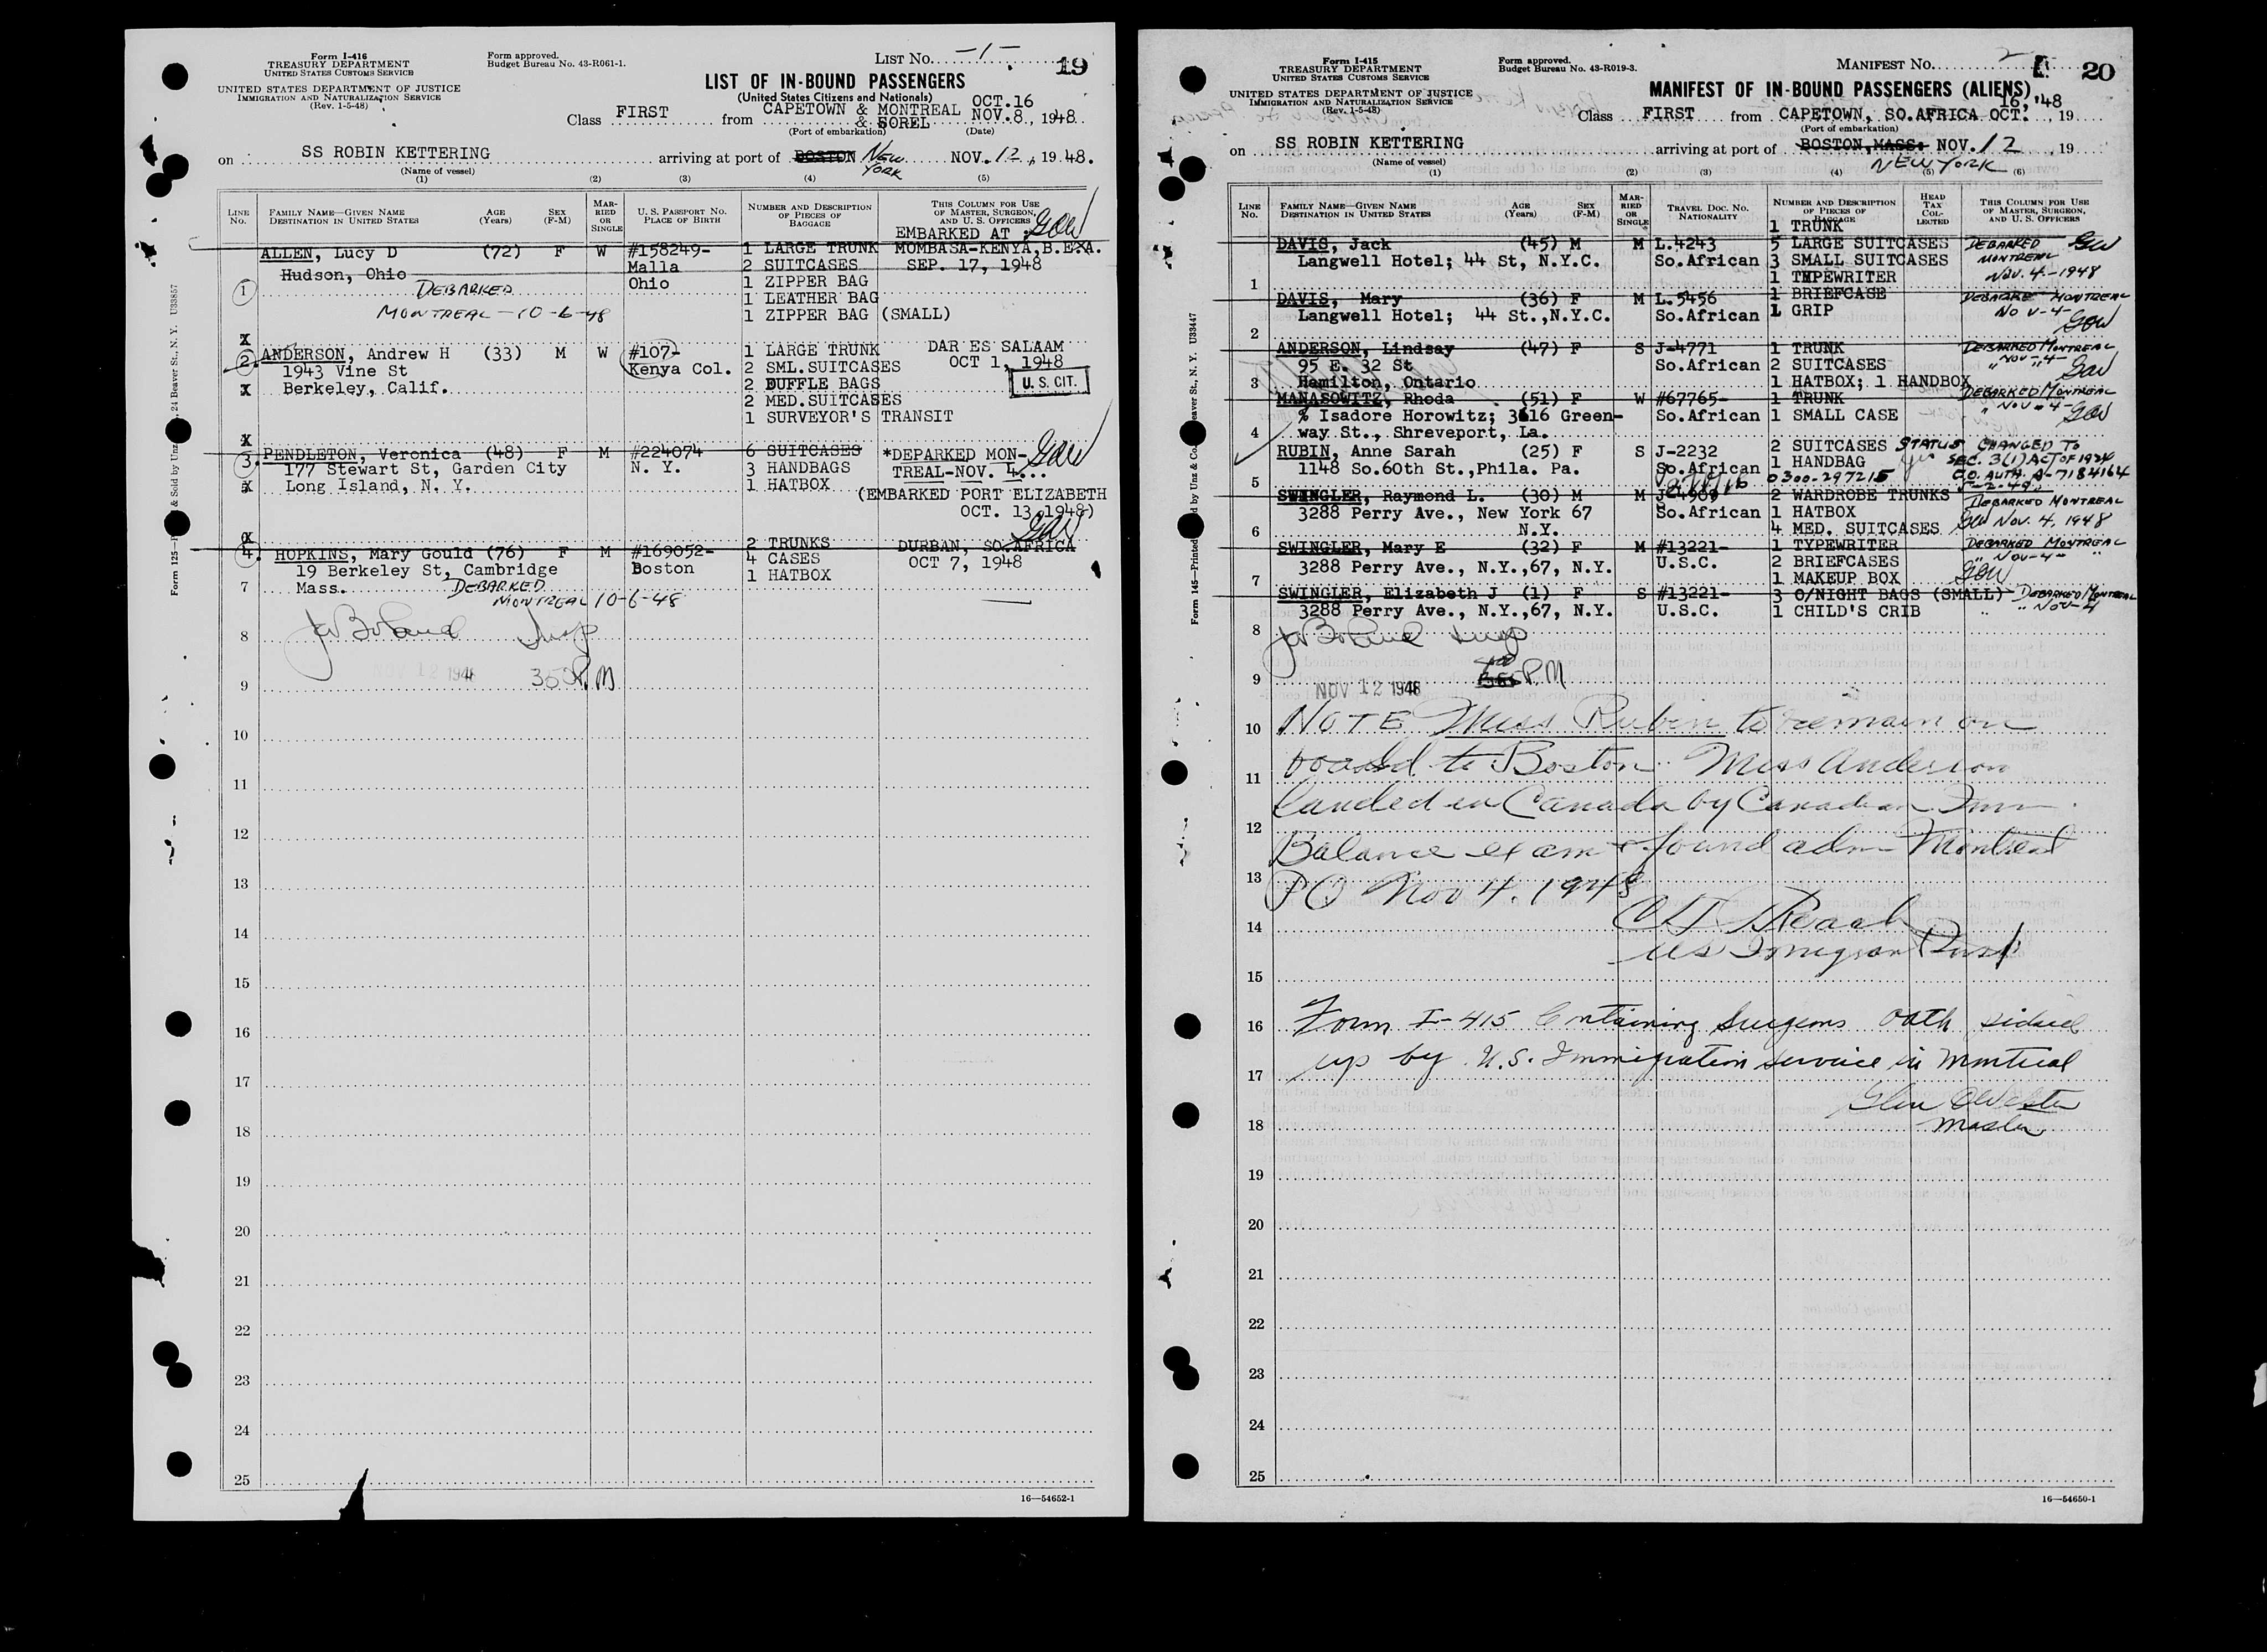 Form I-416
TREASURY DEPARTMENT
UNITED STATES CUSTOMS SERVICE
UNITED STATES DEPARTMENT OF JUSTICE
IMMIGRATION AND NATURALIZATION SERVICE
(Rev. 1-5-48)
Form approved.
Budget Bureau No. 43-R061-1.
LIST No. -1-
19
LIST OF IN-BOUND PASSENGERS
(United States Citizens and Nationals)
Class FIRST from CAPETOWN & MONTREAL & SOREL OCT.16 NOV.8, 1948
(Port of embarkation) (Date)
on SS ROBIN KETTERING arriving at port of BOSTON NEW YORK NOV. 12, 1948.
(Name of vessel)
(1) (2) (3) (4) (5)
LINE No. FAMILY NAME—GIVEN NAME DESTINATION IN UNITED STATES AGE (Years) SEX (F-M) MARRIED OR SINGLE U. S. PASSPORT No. PLACE OF BIRTH NUMBER AND DESCRIPTION OF PIECES OF BAGGAGE THIS COLUMN FOR USE OF MASTER, SURGEON, AND U. S. OFFICERS
EMBARKED AT
ALLEN, Lucy D (72) F W #158249- 1 LARGE TRUNK MOMBASA-KENYA, B.E.A.
Malla 2 SUITCASES SEP. 17, 1948
Hudson, Ohio Ohio 1 ZIPPER BAG
1 DEBARKED 1 LEATHER BAG
MONTREAL - 10-6-48 1 ZIPPER BAG (SMALL)
X
2. ANDERSON, Andrew H (33) M W #107- 1 LARGE TRUNK DAR ES SALAAM
1943 Vine St Kenya Col. 2 SML.SUITCASES OCT 1, 1948
X Berkeley, Calif. 2 DUFFLE BAGS U. S. CIT.
2 MED.SUITCASES
1 SURVEYOR'S TRANSIT
X
3. PENDLETON, Veronica (48) F M #224074 6 SUITCASES *DEPARKED MON-
177 Stewart St, Garden City N. Y. 3 HANDBAGS TREAL-NOV. 4...
Long Island, N. Y. 1 HATBOX (EMBARKED PORT ELIZABETH
OCT. 13,1948)
2 TRUNKS
4. HOPKINS, Mary Gould (76) F M #169052- 4 CASES DURBAN, SO.AFRICA
19 Berkeley St, Cambridge Boston 1 HATBOX OCT 7, 1948
7 Mass. DEBARKED
MONTREAL 10-6-48
8
NOV 12 1948 350 P.M
9
10
11
12
13
14
15
16
17
18
19
20
21
22
23
24
25
16—54652-1
24 Beaver St., N. Y. U33857
Form I-415
TREASURY DEPARTMENT
UNITED STATES CUSTOMS SERVICE
UNITED STATES DEPARTMENT OF JUSTICE
IMMIGRATION AND NATURALIZATION SERVICE
(Rev. 1-5-48)
Form approved.
Budget Bureau No. 43-R019-3.
MANIFEST No. 2
20
MANIFEST OF IN-BOUND PASSENGERS (ALIENS)
Class FIRST from CAPETOWN, SO.AFRICA OCT. 16, '48, 19
(Port of embarkation)
on SS ROBIN KETTERING arriving at port of BOSTON, MASS. NOV. 12, 19
(Name of vessel) NEW YORK
(1) (2) (3) (4) (5) (6)
LINE No. FAMILY NAME—GIVEN NAME DESTINATION IN UNITED STATES AGE (Years) SEX (F-M) MARRIED OR SINGLE TRAVEL DOC. No. NATIONALITY NUMBER AND DESCRIPTION OF PIECES OF BAGGAGE HEAD TAX COLLECTED THIS COLUMN FOR USE OF MASTER, SURGEON, AND U. S. OFFICERS
1 TRUNK
DAVIS, Jack (45) M M L.4243 5 LARGE SUITCASES DEBARKED
Langwell Hotel; 44 St, N.Y.C. So.African 3 SMALL SUITCASES MONTREAL
1 1 TYPEWRITER NOV. 4-1948
DAVIS, Mary (36) F M L.5456 1 BRIEFCASE DEBARKE MONTREAL
Langwell Hotel; 44 St.,N.Y.C. So.African 1 GRIP NOV-4-
2
ANDERSON, Lindsay (47) F S J-4771 1 TRUNK DEBARKED MONTREAL
95 E. 32 St So.African 2 SUITCASES " NOV-4-
3 Hamilton, Ontario 1 HATBOX; 1 HANDBOX
MANASOWITZ, Rhoda (51) F W #67765- 1 TRUNK DEBARKED MONTREAL
% Isadore Horowitz; 3616 Green- So.African 1 SMALL CASE " NOV-4-
4 way St., Shreveport, La.
RUBIN, Anne Sarah (25) F S J-2232 2 SUITCASES STATUS CHANGED TO
1148 So.60th St.,Phila. Pa. So.African 1 HANDBAG SEC. 3(1) ACT OF 1924
5 0300-297215 C.O. AUTH. A-7184164
SWINGLER, Raymond L. (30) M M J-4909 2 WARDROBE TRUNKS DEBARKED MONTREAL
3288 Perry Ave., New York 67 So.African 1 HATBOX NOV. 4, 1948
6 N.Y. 4 MED. SUITCASES
SWINGLER, Mary E (32) F M #13221- 1 TYPEWRITER DEBARKED MONTREAL
3288 Perry Ave., N.Y.,67, N.Y. U.S.C. 2 BRIEFCASES " NOV-4- "
7 1 MAKEUP BOX
SWINGLER, Elizabeth J (1) F S #13221- 3 O/NIGHT BAGS (SMALL) DEBARKED MONTREAL
3288 Perry Ave., N.Y.,67, N.Y. U.S.C. 1 CHILD'S CRIB " " NOV-4
8
9 NOV 12 1948 PM
10 NOTE Miss Rubin to remain on
11 board to Boston. Miss Anderson
landed in Canada by Canadian Imm.
12
Balance exam & found adm Montreal
13
PQ Nov 4. 1948
14
15
16 Form I-415 Containing Surgeons oath
up by U.S. Immigration service in Montreal
17
18 Master
19
20
21
22
23
24
25
16—54650-1
Beaver St., N. Y. U33447